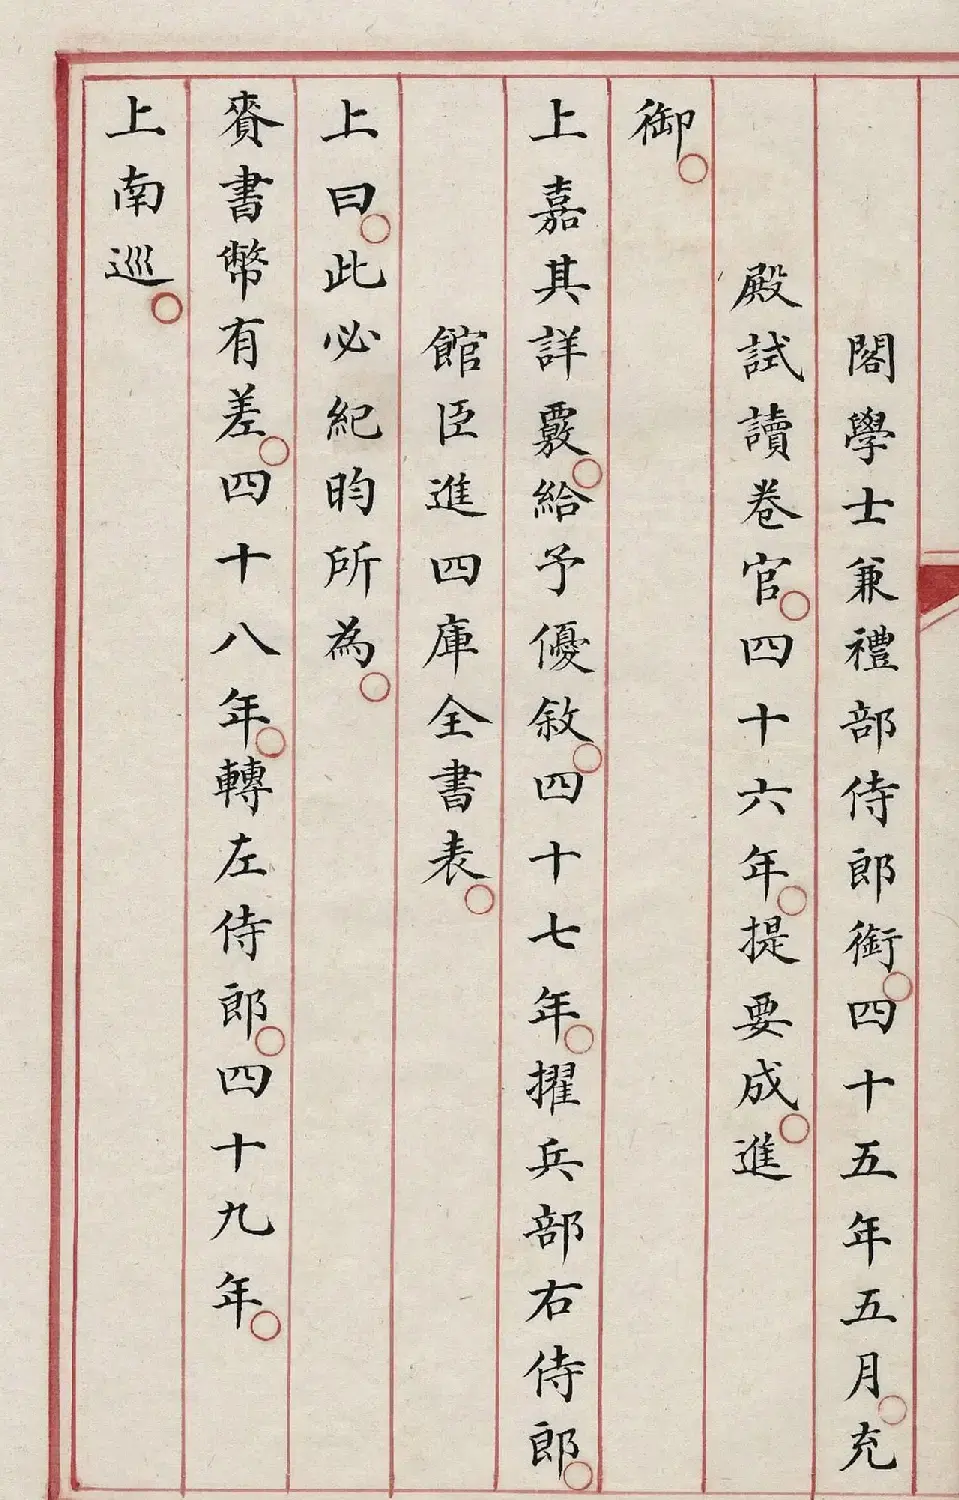 閣學士兼禮部侍郎銜○四十五年五月○充
殿試讀卷官○四十六年○提要成○進
御○
上嘉其詳覈○給予優敘○四十七年○擢兵部右侍郎○
館臣進四庫全書表○
上曰○此必紀昀所為○
賚書幣有差○四十八年○轉左侍郎○四十九年○
上南巡○